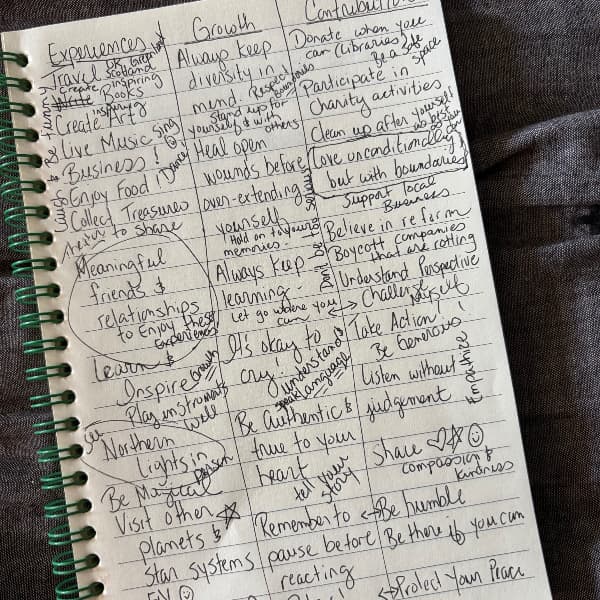 Experiences
Travel
Scotland
Create inspiring
Books
Create Art
inspiring
Live Music
sing
Dance
Business!
Enjoy Food
Collect Treasures
to share
Meaningful
friends &
relationships
to Enjoy these
experiences
Learn &
Inspire
Growth
Play instruments
well
Northern
Lights in
person
Be Magical
Visit other
planets &
star systems
Growth
Always keep
diversity in
mind.
Respect
boundaries
Stand up for
yourself & with
others
Heal open
wounds before
over-extending
yourself
Hold on to your
memories
Don't be too serious
Always keep
learning
Let go where you
can
It's okay to
cry!
Understand
speak
language
Be Authentic &
true to your
heart
tell your
story
Remember to
pause before
reacting
Donate when you
can (libraries)
Be a safe
space
Participate in
charity activities
Clean up after yourself
Love unconditionally
but with boundaries
Support local
Business
Believe in reform
Boycott companies
that are rotting
Understand Perspective
Challenge myself
Take Action!
Be Generous
Listen without
judgement
Empathize
share ♡ ☆ ☺
compassion &
kindness
Be humble
Be there if you can
Protect Your Peace